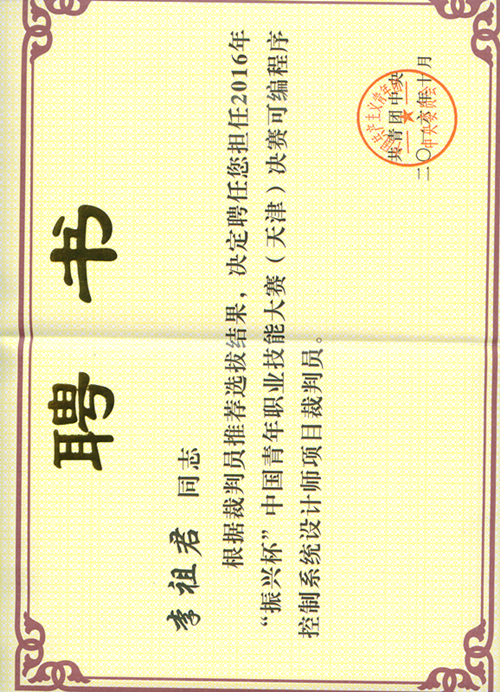 聘书
李祖君 同志
根据裁判员推荐选拔结果，决定聘任您担任2016年
“振兴杯”中国青年职业技能大赛（天津）决赛可编程序
控制系统设计师项目裁判员。
共青团中央
二〇一六年十月